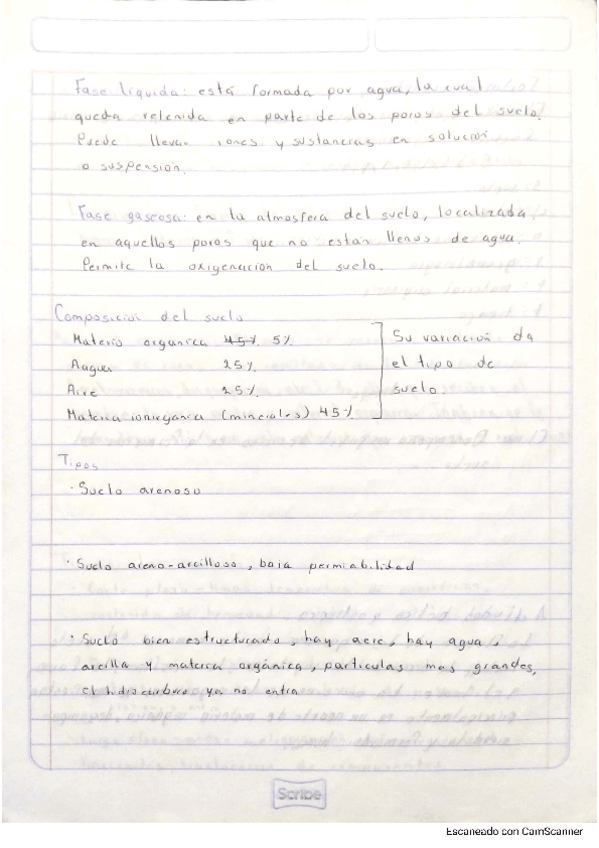 Fase líquida: está formada por agua, la cual
queda retenida en parte de los poros del suelo.
Puede llevar iones y sustancias en solución
o suspensión.
Fase gascosa: en la atmosfera del suelo, localizada
en aquellos poros que no están llenos de agua.
Permite la oxigenación del suelo.
Composición del suelo
Materia organica 45% 5%
Aagua 25%
Aire 25%
Materia ionirganica (minerales) 45%
Su variación da
el tipo de
suelo
Tipos
· Suelo arenoso
· Suelo areno-arcilloso, baja permiabilidad
· Suelo bien estructurado, hay aere, hay agua,
arcilla y materia orgánica, particulas mas grandes,
el hidrocarburo ya no entra
Scribe
Escaneado con CamScanner